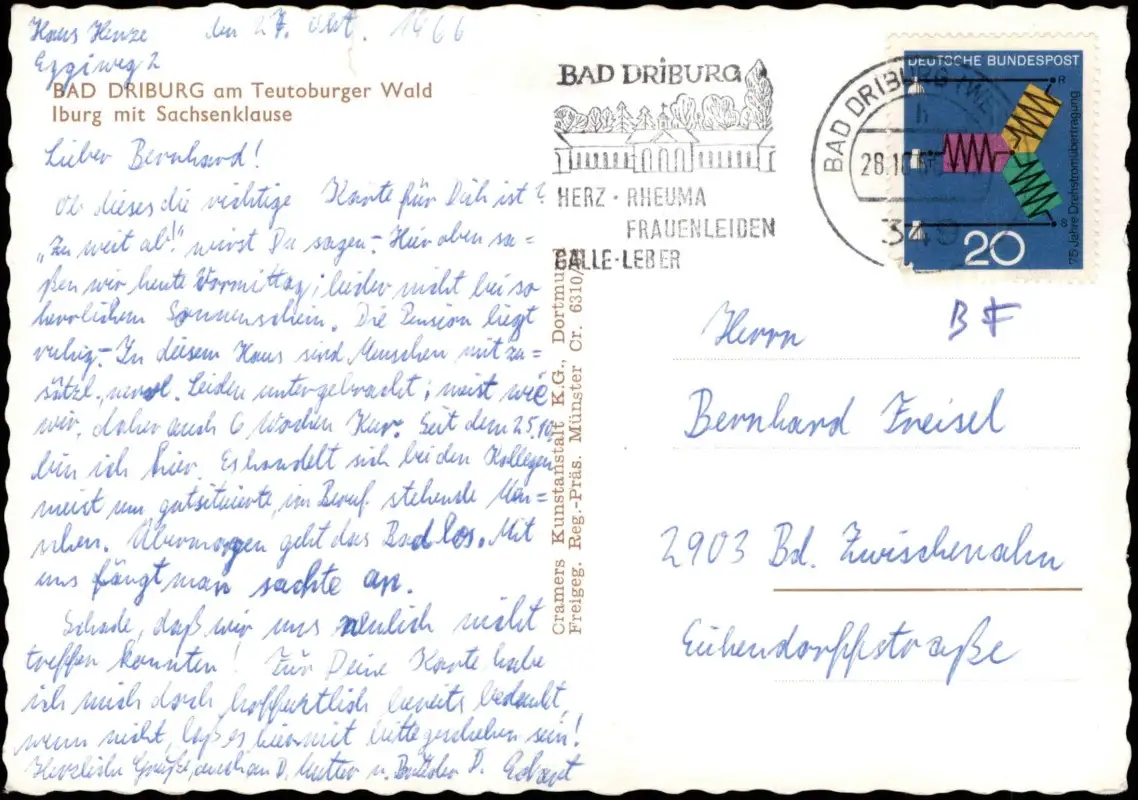 Haus Henze den 27. Okt. 1966
Eggiweg 2
BAD DRIBURG am Teutoburger Wald
Iburg mit Sachsenklause
Lieber Bernhard!
Ob dieses die richtige Karte für Dich ist?
„Zu weit ab!" wirst Du sagen – Hier oben sa=
ßen wir heute Vormittag; leider nicht bei so
herrlichem Sonnenschein. Die Pension liegt
ruhig. – In diesem Haus sind Menschen mit zu=
sätzl. nervl. Leiden untergebracht; meist wie
wir, daher auch 6 Wochen Kur. Seit dem 25.10.
bin ich hier. Es handelt sich bei den Kollegen
meist um gutsituierte, im Beruf stehende Men=
schen. Übermorgen geht das Bad los. Mit
uns fängt man sachte an.
Schade, daß wir uns neulich nicht
treffen konnten! Für Deine Karte habe
ich mich doch hoffentlich bereits bedankt,
wenn nicht, laß es hiermit bitte geschehen sein!
Herzliche Grüße, auch an D. Mutter u. Brüder D. Eckart
Cramers Kunstanstalt K.G., Dortmund
Freigeg. Reg.-Präs. Münster Cr. 6310/
BAD DRIBURG
HERZ · RHEUMA
FRAUENLEIDEN
GALLE · LEBER
BAD DRIBURG (WE
h
28.10.66
349
DEUTSCHE BUNDESPOST
R
S
75 Jahre Drehstromübertragung
20
BF
Herrn
Bernhard Freisel
2903 Bd. Zwischenahn
Eichendorffstraße